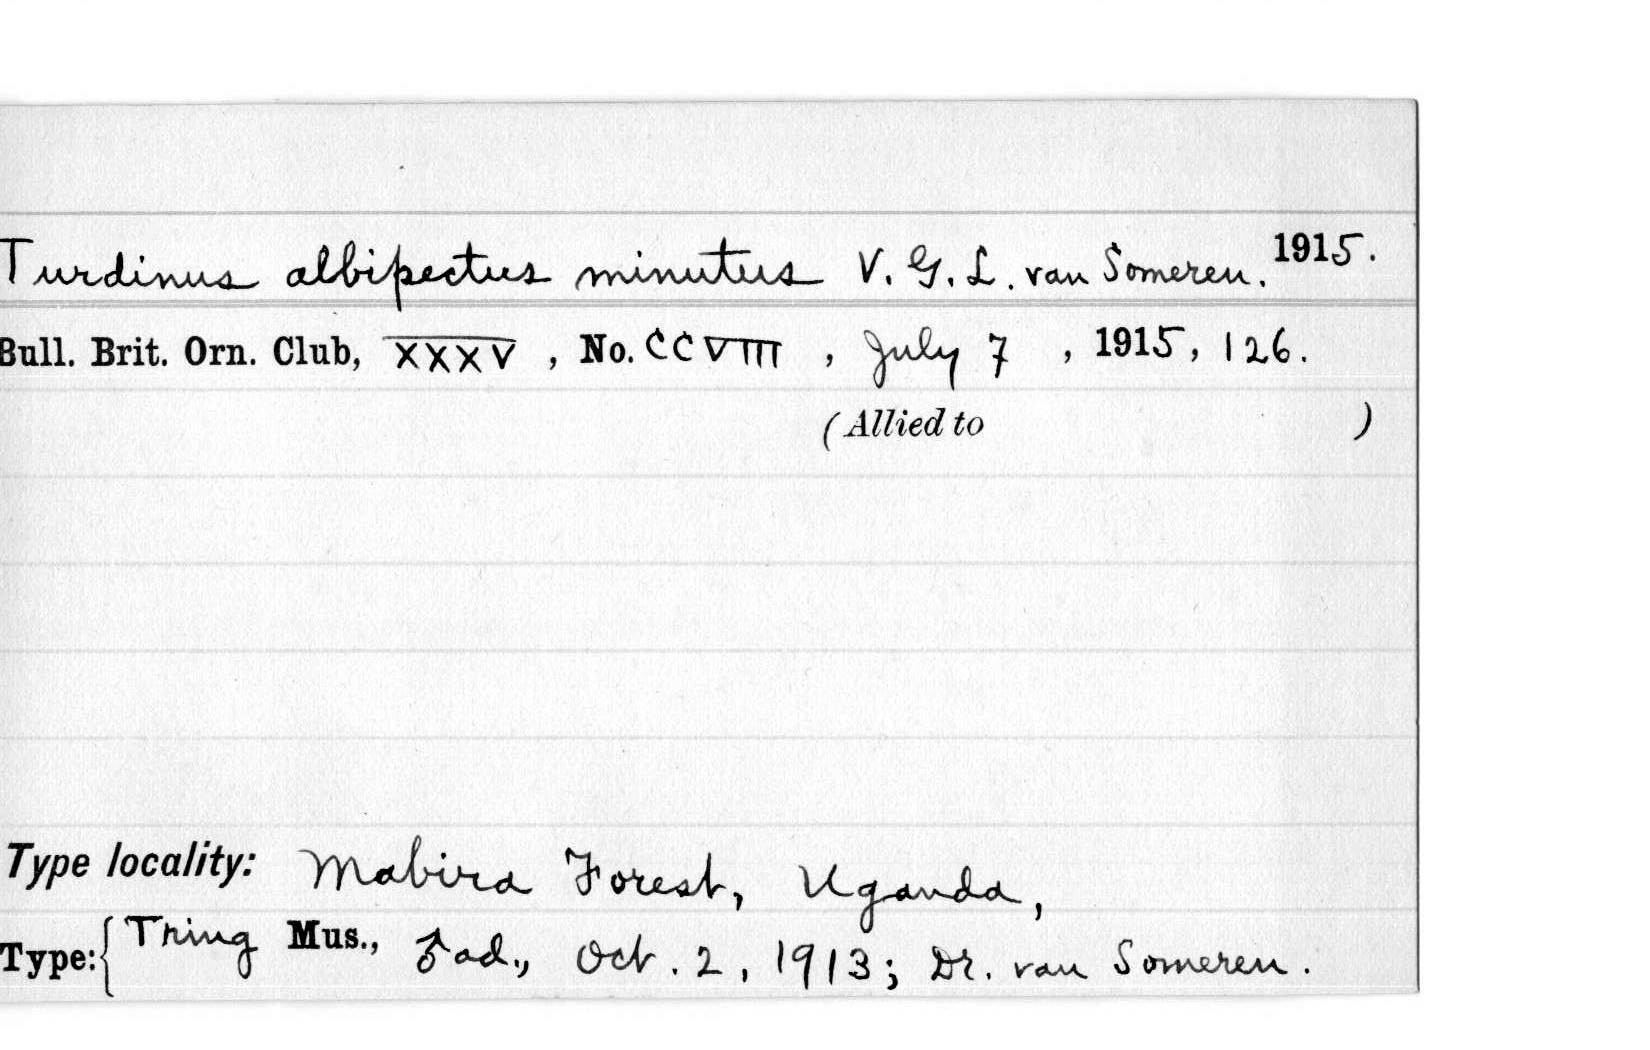 Turdinus albipectus minutus V. G. L. van Someren. 1915.
Bull. Brit. Orn. Club, XXXV, No. CCVIII, July 7, 1915, 126.
(Allied to )
Type locality: Mabira Forest, Uganda,
Type: { Tring Mus., ♂ ad., Oct. 2, 1913; Dr. van Someren.